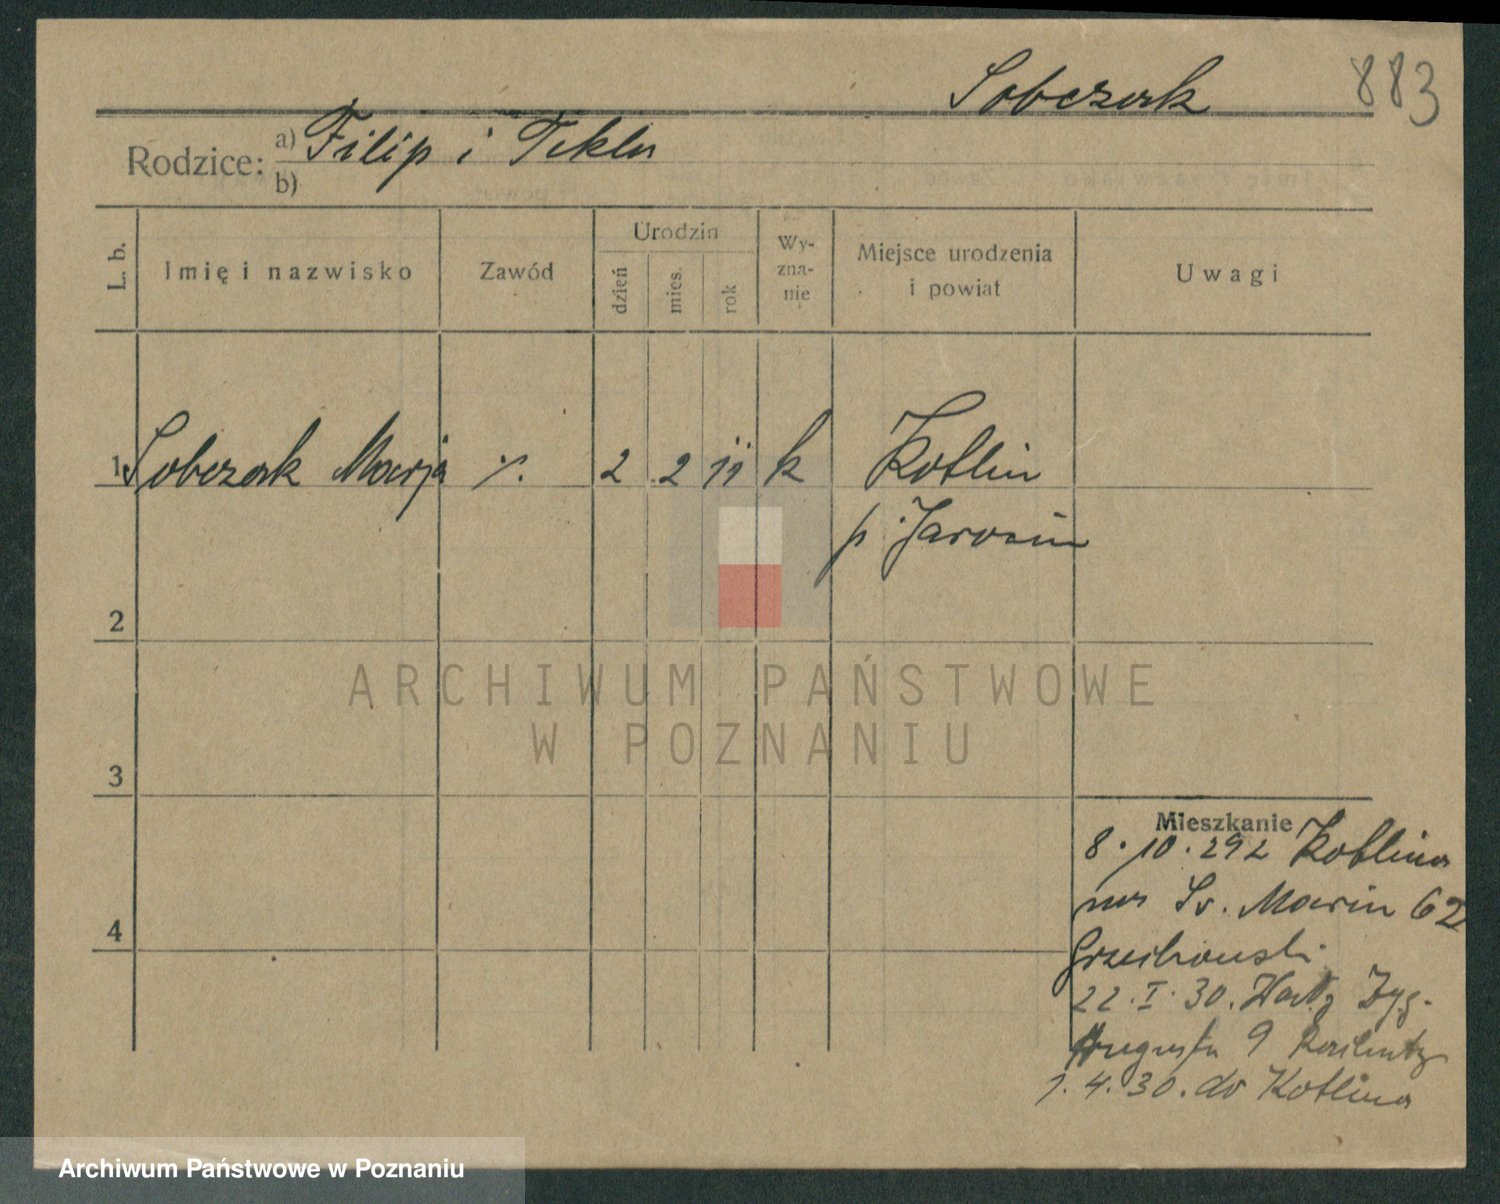 Sobczak 883
Rodzice: a) Filip i Tekla
b)
L. b. Imię i nazwisko Zawód Urodzin dzień mies. rok Wy-zna-nie Miejsce urodzenia i powiat Uwagi
1 Sobczak Marja ·/. 2 2 11 k Kotlin
p. Jarocin
2
ARCHIWUM PAŃSTWOWE
W POZNANIU
3
Mieszkanie
8.10.292 Kotlina
na Sv. Marcin 62
4
Grzechowski
22.I.30. Zyg.
Augusta 9
1.4.30. do Kotlina
Archiwum Państwowe w Poznaniu